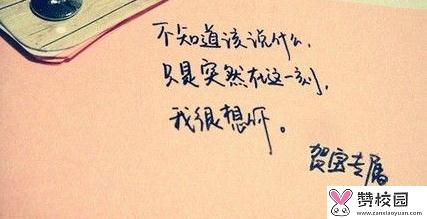 不知道该说什么，
只是突然在这一刻，
我很想你。
贺宝专属
赞校园
www.zanxiaoyuan.com